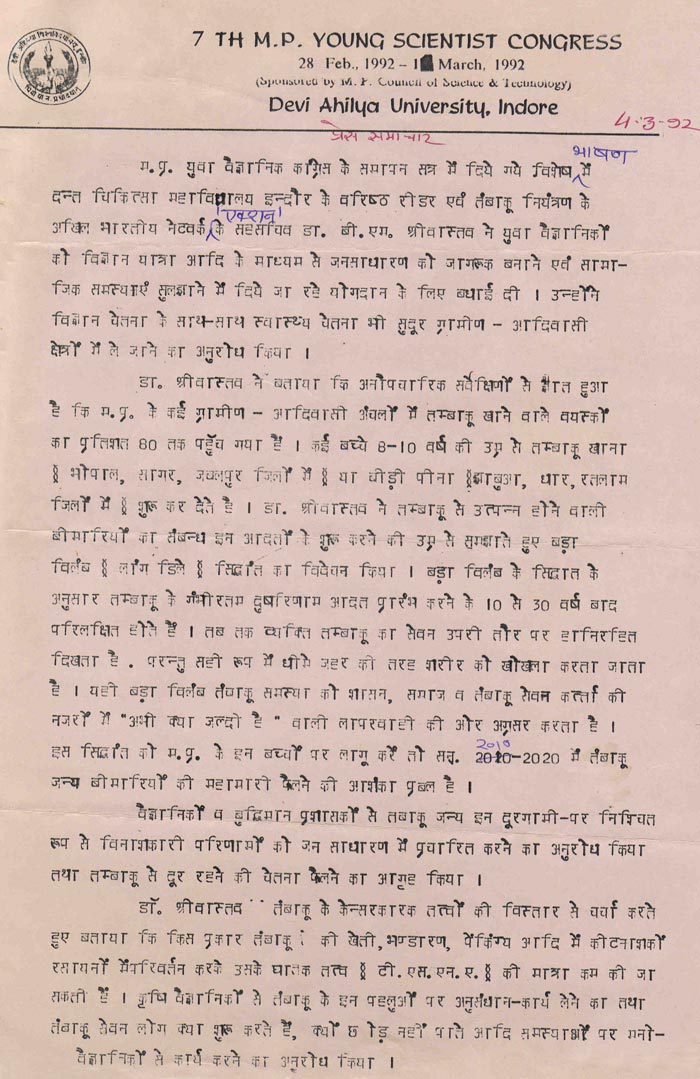 7 TH M.P. YOUNG SCIENTIST CONGRESS
28 Feb., 1992 – 1 March, 1992
(Sponsored by M. P. Council of Science & Technology)
Devi Ahilya University, Indore
4-3-92
प्रेस समाचार
भाषण
म.प्र. युवा वैज्ञानिक कांग्रेस के समापन सत्र में दिये गये विशेष में
दन्त चिकित्सा महाविद्यालय इन्दौर के वरिष्ठ रीडर एवं तंबाकू नियंत्रण के
एक्शन
अखिल भारतीय नेटवर्क के सहसचिव डा. बी.एम. श्रीवास्तव ने युवा वैज्ञानिकों
को विज्ञान यात्रा आदि के माध्यम से जनसाधारण को जागरूक बनाने एवं सामा-
जिक समस्याएं सुलझाने में दिये जा रहे योगदान के लिए बधाई दी । उन्होंने
विज्ञान चेतना के साथ-साथ स्वास्थ्य चेतना भी सुदूर ग्रामीण - आदिवासी
क्षेत्रों में ले जाने का अनुरोध किया ।
डा. श्रीवास्तव ने बताया कि अनौपचारिक सर्वेक्षिणों से ज्ञात हुआ
है कि म.प्र. के कई ग्रामीण - आदिवासी अंचलों में तम्बाकू खाने वाले वयस्कों
का प्रतिशत 80 तक पहुँच गया है । कई बच्चे 8-10 वर्ष की उम्र से तम्बाकू खाना
§ भोपाल, सागर, जबलपुर जिलों में § या बीड़ी पीना §झाबुआ, धार, रतलाम
जिलों में § शुरू कर देते है । डा. श्रीवास्तव ने तम्बाकू से उत्पन्न होने वाली
बीमारियों का संबन्ध इन आदतों के शुरू करने की उम्र से समझाते हुए बड़ा
विलंब § लांग डिले § सिद्धांत का विवेचन किया । बड़ा विलंब के सिद्धांत के
अनुसार तम्बाकू के गंभीरतम दुष्परिणाम आदत प्रारंभ करने के 10 से 30 वर्ष बाद
परिलक्षित होते हैं । तब तक व्यक्ति तम्बाकू का सेवन उपरी तौर पर हानिरहित
दिखता है . परन्तु सही रूप में धीमे जहर की तरह शरीर को खोखला करता जाता
है । यही बड़ा विलंब तंबाकू समस्या को शासन, समाज व तंबाकू सेवन कर्त्ता की
नजरों में "अभी क्या जल्दी है " वाली लापरवाही की ओर अग्रसर करता है ।
2010
इस सिद्धांत को म.प्र. के इन बच्चों पर लागू करें तो सन् 2020-2020 में तंबाकू
जन्य बीमारियों की महामारी फैलने की आशंका प्रबल है ।
वैज्ञानिकों व बुद्धिमान प्रशासकों से तबाकू जन्य इन दूरगामी-पर निश्चित
रूप से विनाशकारी परिणामों को जन साधारण में प्रचारित करने का अनुरोध किया
तथा तम्बाकू से दूर रहने की चेतना फैलने का आग्रह किया ।
डॉ. श्रीवास्तव ने तंबाकू के केन्सरकारक तत्वों की विस्तार से चर्चा करते
हुए बताया कि किस प्रकार तंबाकू की खेती, भण्डारण, पेंकिंग्य आदि में कीटनाशकों
रसायनों मेंपरिवर्तन करके उसके घातक तत्व § टी.एस.एन.ए.§ की मात्रा कम की जा
सकती हैं । कृषि वैज्ञानिकों से तंबाकू के इन पहलुओं पर अनुसंधान-कार्य लेने का तथा
तंबाकू सेवन लोग क्या शुरू करते हैं, क्यों छोड़ नहीं पाते आदि समस्याओं पर मनो-
वैज्ञानिकों से कार्य करने का अनुरोध किया ।